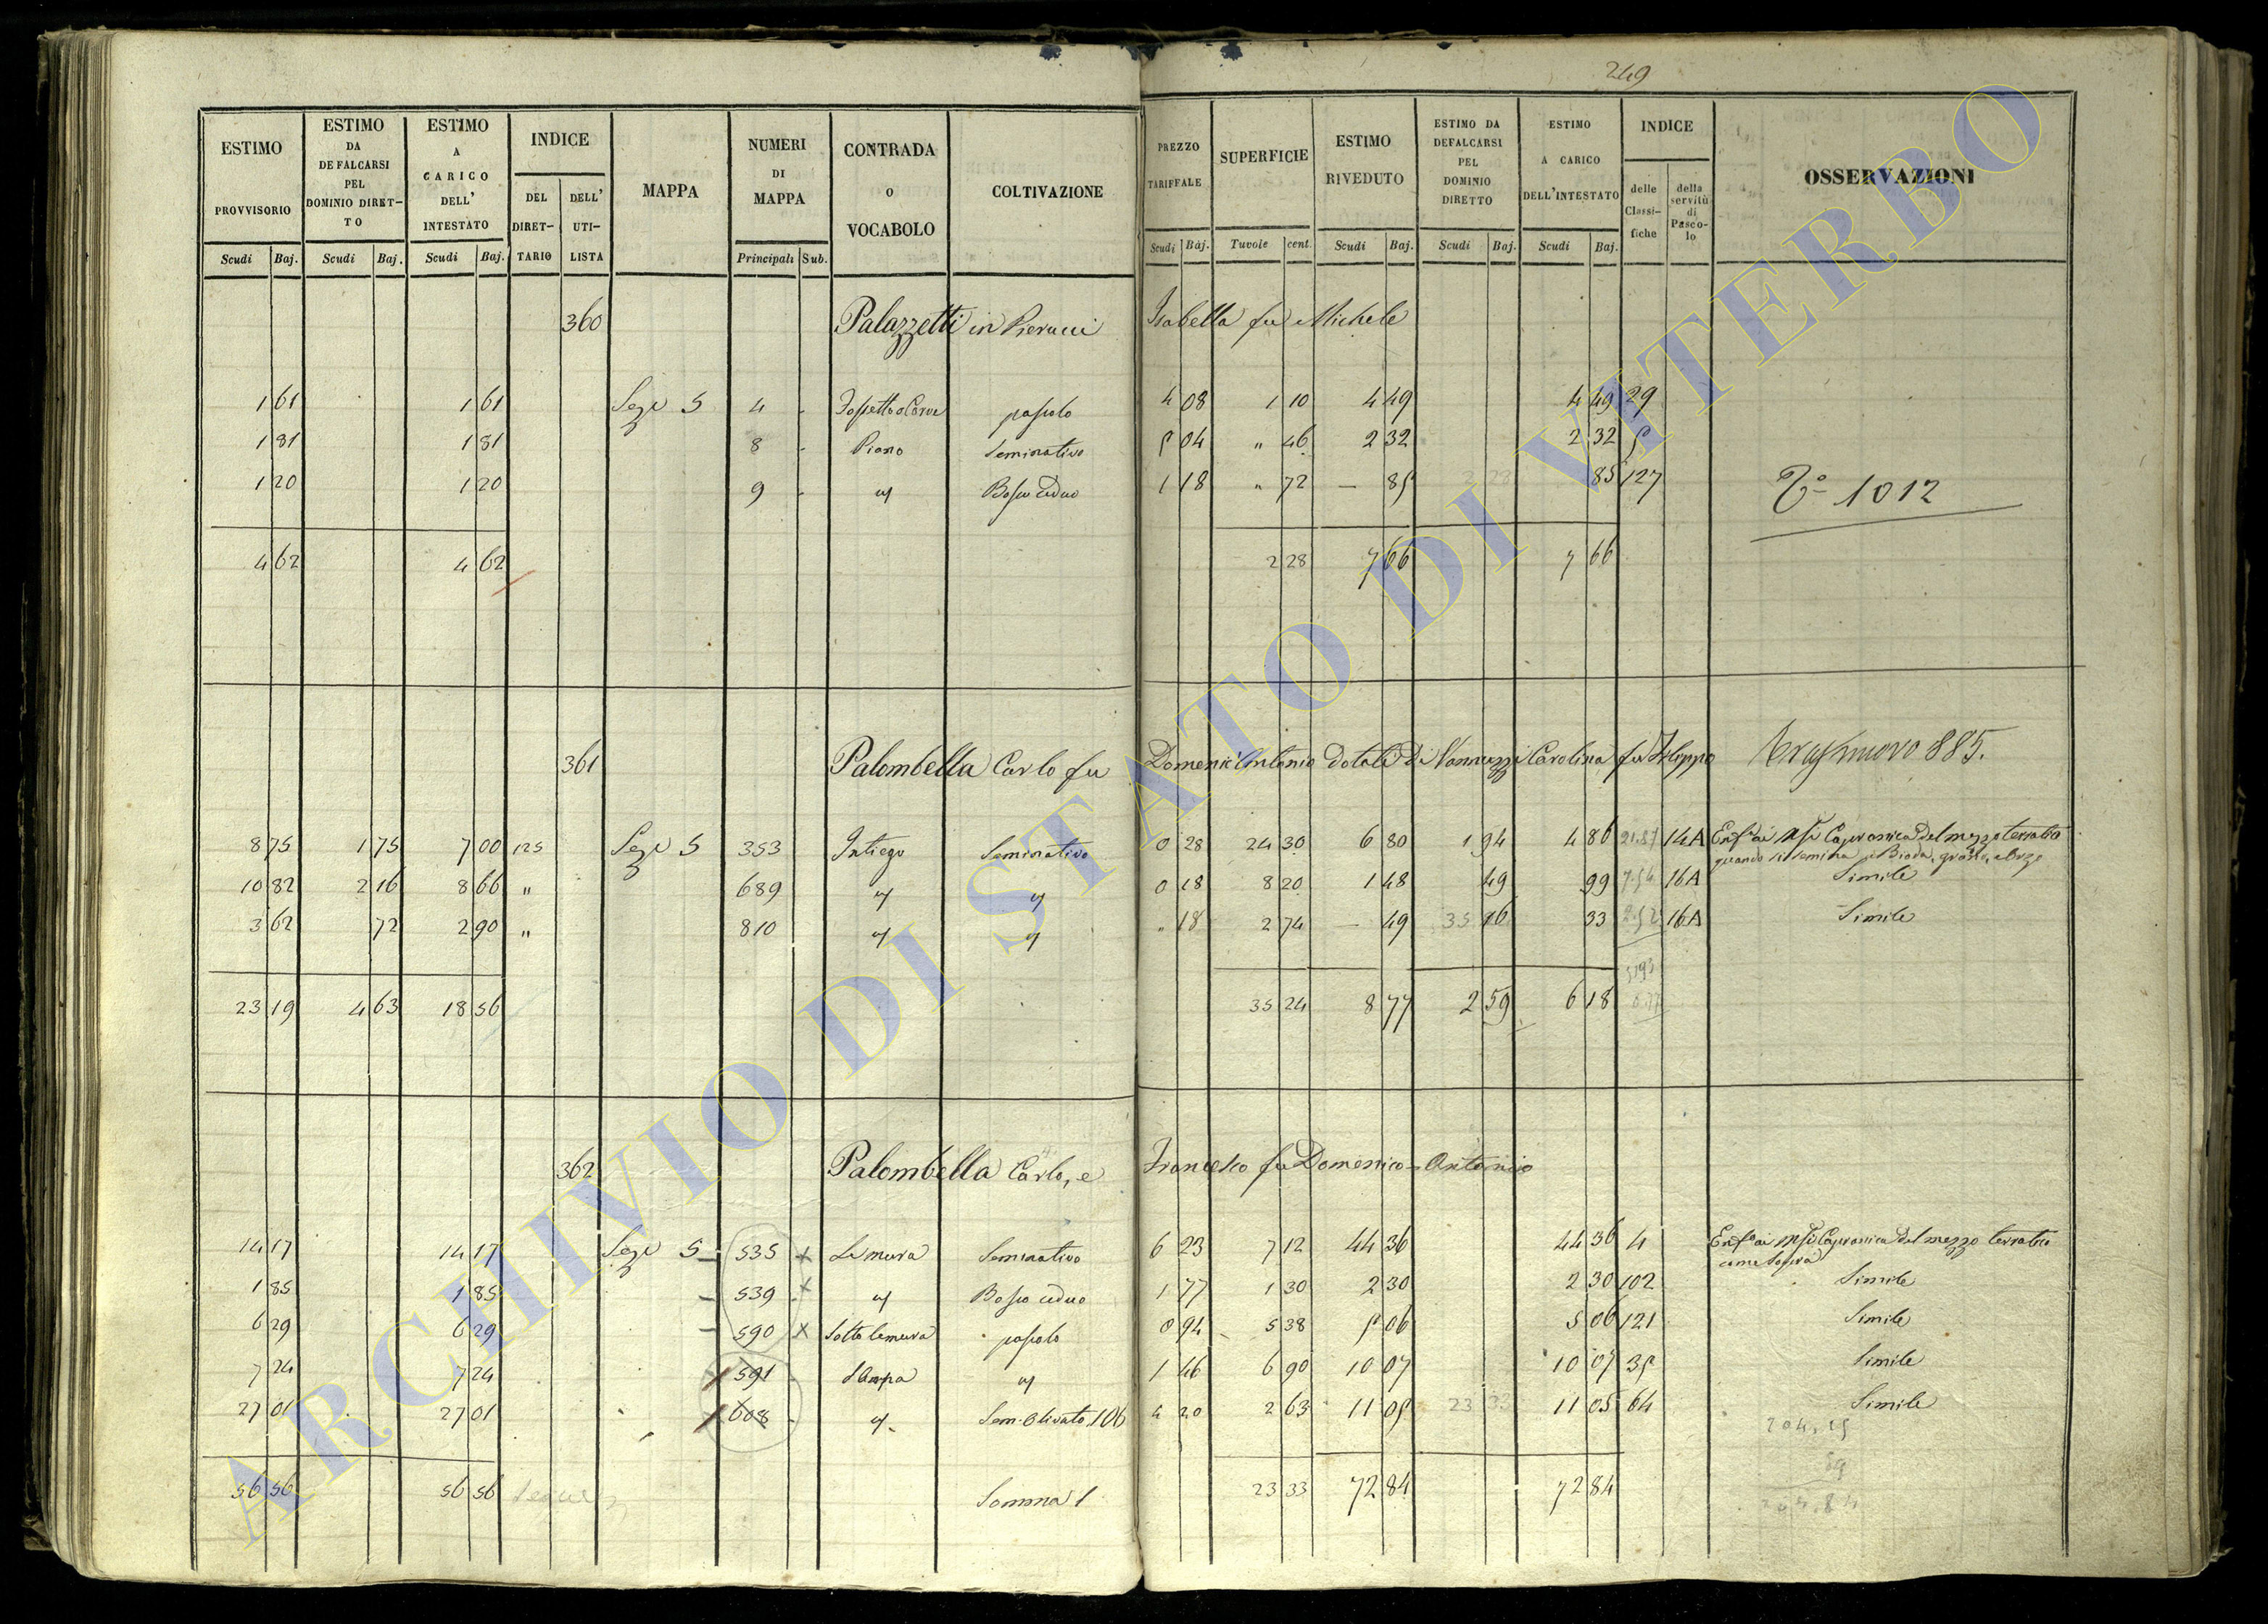 249
ESTIMO PROVVISORIO | ESTIMO DA DEFALCARSI PEL DOMINIO DIRETTO | ESTIMO A CARICO DELL' INTESTATO | INDICE | MAPPA | NUMERI DI MAPPA | CONTRADA O VOCABOLO | COLTIVAZIONE | PREZZO TARIFFALE | SUPERFICIE | ESTIMO RIVEDUTO | ESTIMO DA DEFALCARSI PEL DOMINIO DIRETTO | ESTIMO A CARICO DELL'INTESTATO | INDICE | OSSERVAZIONI
DEL DIRETTARIO | DELL' UTILISTA | delle Classifiche | della servitù di Pascolo
Scudi Baj. | Scudi Baj. | Scudi Baj. | Principali Sub. | Scudi Baj. | Tavole cent. | Scudi Baj. | Scudi Baj. | Scudi Baj.
360 Palazzetti in Pierucci Isabella fu Michele
1 61 | 1 61 | Sez.e 5 | 4 | pascolo | 4 08 | 1 10 | 4 49 | 4 49 | 29
1 81 | 1 81 | 8 | Piano | Seminativo | 5 04 | " 46 | 2 32 | 2 32 | 5
1 20 | 1 20 | 9 | " | Bosco ceduo | 1 18 | " 72 | — 85 | 85 | 127 | 1012
4 62 | 4 62 | 2 28 | 7 66 | 7 66
361 Palombella Carlo fu Domenic'Antonio dotali di Nannuzzi Carolina fu Filippo 885.
8 75 | 1 75 | 7 00 | 125 | Sez.e 5 | 353 | Intiego | Seminativo | 0 28 | 24 30 | 6 80 | 1 94 | 4 86 | 21.87 | 14A | Capranica del mezzo terratico
quando si semina Biada, grano, ed orzo
10 82 | 2 16 | 8 66 | " | 689 | " | " | 0 18 | 8 20 | 1 48 | 49 | 99 | 7.54 | 16A | Simile
3 62 | 72 | 2 90 | " | 810 | " | " | " 18 | 2 74 | — 49 | 16 | 33 | 2.52 | 16A | Simile
23 19 | 4 63 | 18 56 | 35 24 | 8 77 | 2 59 | 6 18
362 Palombella Carlo, e Francesco fu Domenico-Antonio
14 17 | 14 17 | Sez.e 5 | 535 | x | Le mura | Seminativo | 6 23 | 7 12 | 44 36 | 44 36 | 4 | Capranica del mezzo terratico
come sopra
1 85 | 1 85 | 539 | x | " | Bosco ceduo | 1 77 | 1 30 | 2 30 | 2 30 | 102 | Simile
6 29 | 6 29 | 590 | x | Sotto le mura | pascolo | 0 94 | 5 38 | 5 06 | 5 06 | 121 | Simile
7 24 | 7 24 | 591 | " | 1 46 | 6 90 | 10 07 | 10 07 | 35 | Simile
27 01 | 27 01 | 608 | " | Sem. Olivato 106 | 4 20 | 2 63 | 11 05 | 23 33 | 11 05 | 64 | Simile
56 56 | 56 56 | Segue | Somma 1 | 23 33 | 72 84 | 72 84
ARCHIVIO DI STATO DI VITERBO